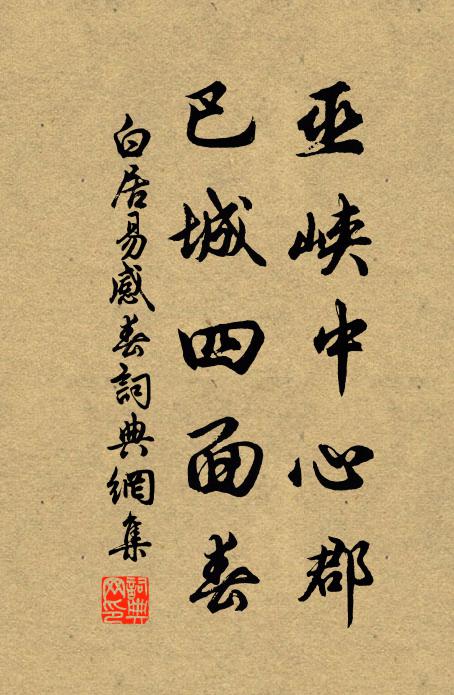 巫峽中心郡
巴城四面春
白居易感春詞典網集
詞典網印